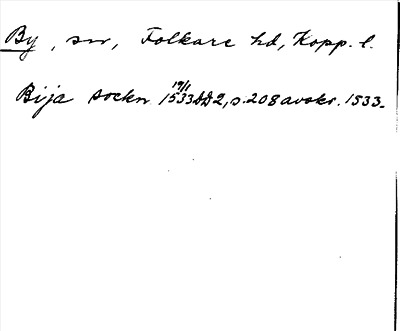 By, sn, Folkare hd, Kopp. l.
Bija sockn 19/1 1533 DD 2, s. 208 avskr. 1533.